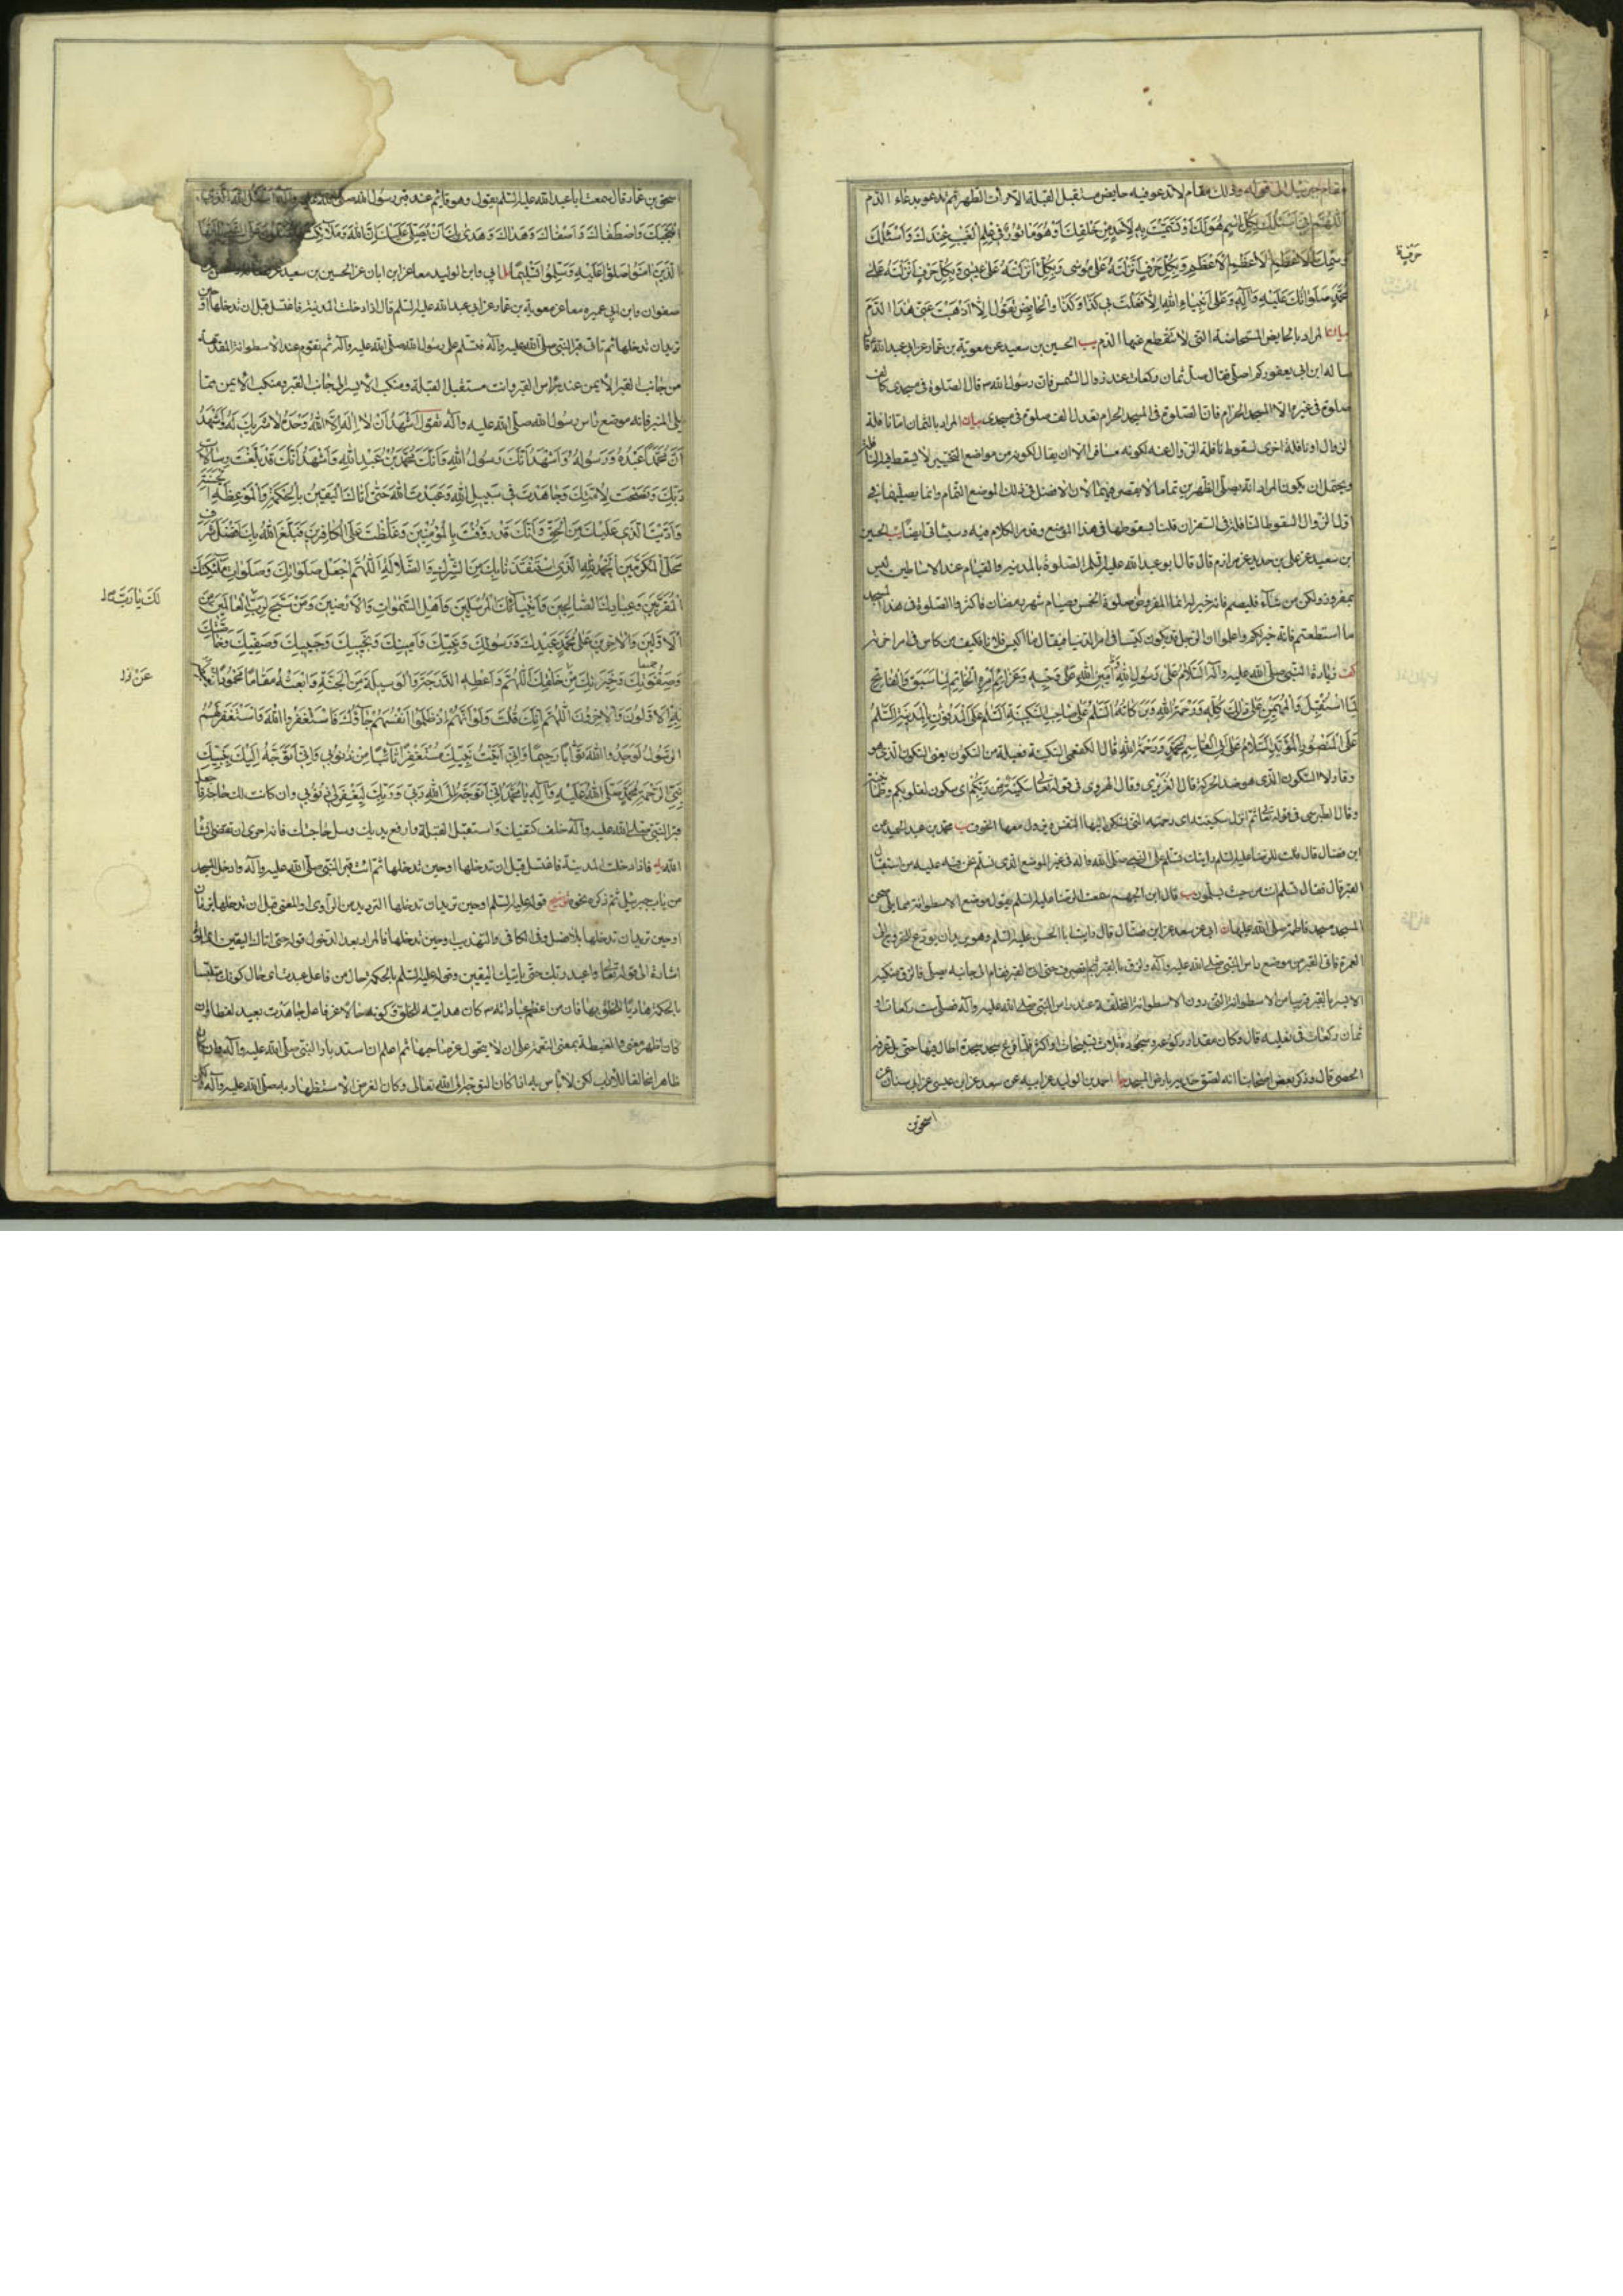 مقام جبرئيل الى قوله وذلك مقام لا تدعو فيه حايض مستقبل القبلة الا رأت الطهر ثم تدعو بدعاء الدم
اللهم انى اسئلك بكل اسم هو لك او تسميت به لاحد من خلقك او هو ماثور فى علم الغيب عندك واسئلك
باسمك الاعظم الاعظم الاعظم وبكل حرف انزلته على موسى وبكل حرف انزلته على عيسى وبكل حرف انزلته على
محمد صلواتك عليه وآله وعلى انبياء الله الا فعلت بى كذا وكذا والحايض تقول الا اذهبت عنى هذا الدم
بيان المراد بالحايض المستحاضة التى لا ينقطع عنها الدم يب الحسين بن سعيد عن معوية بن عمار عن ابى عبد الله قال
ساله ابن ابى يعفور كم اصلى فقال صل ثمان ركعات عند زوال الشمس فان رسول الله قال الصلوة فى مسجدى كالف
صلوة فى غيره الا المسجد الحرام فان الصلوة فى المسجد الحرام تعدل الف صلوة فى مسجدى بيان المراد بالثمان اما نافلة
الزوال او نافلة اخرى لسقوط نافلة الزوال عنه لكونه مسافرا الا ان يقال لكونه من مواضع التخيير لا يسقط فيه النافلة
ويحتمل ان يكون المراد انه يصلى الظهرين تماما لا يقصر فيهما لان الافضل فى ذلك الموضع التمام وانما يصليهما فى
اول الزوال لسقوط النافلة فى السفر ان قلنا بسقوطها فى هذا الموضع وقد مر الكلام فيه وسياتى ايضا يب الحسين
بن سعيد عن على بن حديد عن مرازم قال قال ابو عبد الله عليه السلم الصلوة بالمدينة والقيام عند الاساطين ليس
بمفروض ولكن من شاء فليصم فانه خير له انما المفروض صلوة الخمس وصيام شهر رمضان فاكثروا الصلوة فى هذا المسجد
ما استطعتم فانه خير لكم واعلموا ان الرجل قد يكون كيسا فى امر الدنيا فيقال ما اكيس فلانا فكيف من كاس فى امر اخرته
زيارة النبى صلى الله عليه وآله السلام على رسول الله امين الله على وحيه وعزائم امره الخاتم لما سبق والفاتح
لما استقبل والمهيمن على ذلك كله ورحمة الله وبركاته السلم على صاحب السكينة السلم على المدفون بالمدينة السلم
على المنصور المؤيد السلام على ابى القاسم محمد ورحمة الله قال الكفعمى السكينة فعيلة من السكون يعنى السكون الذى هو
وقار لا السكون الذى هو ضد الحركة قال العزيزى وقال الهروى فى قوله تعالى سكينة من ربكم اى سكون لقلوبكم
وقال الطبرسى فى قوله تعالى ثم انزل سكينته اى رحمته التى تسكن اليها النفس ويزول معها الخوف محمد بن عبد الحميد عن
ابن فضال قال قلت للرضا عليه السلم رايتك تسلم على النبى صلى الله وآله فى غير الموضع الذى نسلم نحن فيه عليه من استقبال
القبر قال فقال تسلم انت من حيث يسلمون قال ابن الجهم سمعت الرضا عليه السلم يقول موضع الاسطوانة مما يلى صحن
المسجد مسجد فاطمة صلى الله عليها ابى عن سعد عن ابن فضال قال رايت ابا الحسن عليه السلم وهو يريد ان يودع للخروج الى
العمرة فاتى القبر من موضع راس النبى صلى الله عليه وآله ولزق بالقبر ثم انصرف حتى اتى القبر فقام الى جانبه يصلى فالزق منكبه
الايسر بالقبر قريبا من الاسطوانة التى دون الاسطوانة المخلقة عند راس النبى صلى الله عليه وآله فصلى ست ركعات او
ثمان ركعات فى نعليه قال وكان مقدار ركوعه وسجوده ثلاث تسبيحات او اكثر فلما فرغ سجد سجدة اطال فيها حتى بل عرقه
الحصى قال وذكر بعض اصحابنا انه لصق خده بارض المسجد احمد بن الوليد عن ابيه عن سعد عن ابن عيسى عن ابن سنان عن
اسحق بن
حرمة
اسحق بن عمار قال سمعت ابا عبد الله عليه السلم يقول وهو قائم عند قبر رسول الله صلى الله عليه وآله اسئل الله الذى
اجتبيك واصطفاك واصفاك وهداك وهدى بك ان يصلى عليك ان الله وملائكته يصلون على النبى يا ايها
الذين امنوا صلوا عليه وسلموا تسليما ابى وابن الوليد معا عن ابن ابان عن الحسين بن سعيد عن
صفوان وابن ابى عمير معا عن معوية بن عمار عن ابى عبد الله عليه السلم قال اذا دخلت المدينة فاغتسل قبل ان تدخلها او حين
تريد ان تدخلها ثم تاتى قبر النبى صلى الله عليه وآله فتسلم على رسول الله صلى الله عليه وآله ثم تقوم عند الاسطوانة المقدمة
من جانب القبر الايمن عند راس القبر وانت مستقبل القبلة ومنكبك الايسر الى جانب القبر ومنكبك الايمن مما
يلى المنبر فانه موضع راس رسول الله صلى الله عليه وآله تقول اشهد ان لا اله الا الله وحده لا شريك له واشهد
ان محمدا عبده ورسوله واشهد انك رسول الله وانك محمد بن عبد الله واشهد انك قد بلغت رسالات
ربك ونصحت لامتك وجاهدت فى سبيل الله وعبدت الله حتى اتاك اليقين بالحكمة والموعظة الحسنة
واديت الذى عليك من الحق وانك قد رؤفت بالمؤمنين وغلظت على الكافرين فبلغ الله بك افضل شرف
محل المكرمين الحمد لله الذى استنقذنا بك من الشرك والضلالة اللهم اجعل صلواتك وصلوات ملئكتك
المقربين وعبادك الصالحين وانبيائك المرسلين واهل السموات والارضين ومن سبح لرب العالمين من
الاولين والاخرين على محمد عبدك ورسولك ونبيك وامينك ونجيك وحبيبك وصفيك وخاصتك
وصفوتك وخيرتك من خلقك اللهم واعطه الدرجة والوسيلة من الجنة وابعثه مقاما محمودا يغبطه
به الاولون والاخرون اللهم انك قلت ولو انهم اذ ظلموا انفسهم جاؤك فاستغفروا الله واستغفر لهم
الرسول لوجدوا الله توابا رحيما وانى اتيت نبيك مستغفرا تائبا من ذنوبى وانى اتوجه اليك بنبيك
نبى الرحمة محمد صلى الله عليه وآله يا محمد انى اتوجه الى الله ربى وربك ليغفر لى ذنوبى وان كانت لك حاجة فاجعل
قبر النبى صلى الله عليه وآله خلف كتفيك واستقبل القبلة وارفع يديك وسل حاجتك فانه احرى ان تقضى انشا
الله فاذا دخلت المدينة فاغتسل قبل ان تدخلها او حين تدخلها ثم ائت قبر النبى صلى الله عليه وآله وادخل المسجد
من باب جبرئيل ثم ذكر نحوه توضيح قوله عليه السلم او حين تريد ان تدخلها الترديد من الراوى او المعنى قبل ان تدخلها بزمان
او حين تريد ان تدخلها بلا فصل وفى الكافى والتهذيب او حين تدخلها فالمراد بعد الدخول قوله حتى اتاك اليقين اى الموت
اشارة الى قوله تعالى واعبد ربك حتى ياتيك اليقين وقوله عليه السلم بالحكمة حال من فاعل عبدت اى حال كونك متلبسا
بالحكمة هاديا للخلق بها فان من اعظم عباداته كان هداية الخلق وكونه حالا عن فاعل جاهدت بعيد لفظا وان
كان اظهر معنى والغبطة بمعنى النعمة على ان لا يتحول عن صاحبها ثم اعلم ان استدبار النبى صلى الله عليه وآله وان كان
ظاهرا مخالفا للادب لكن لا باس به اذا كان التوجه الى الله تعالى وكان الغرض الاستظهار به صلى الله عليه وآله
لك يا رب
عن